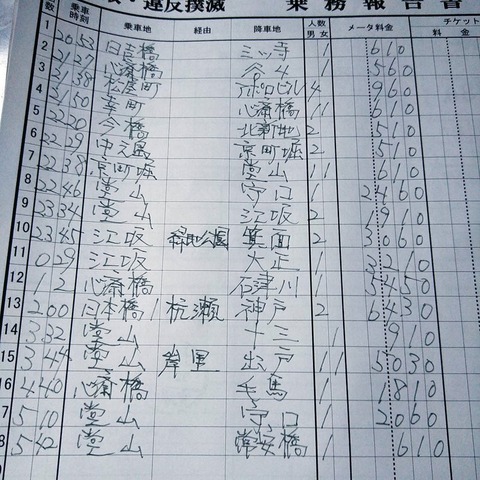 ・違反撲滅 乗務報告書
数 乗車時刻 乗車地 経由 降車地 人数 男 女 メータ料金 チケット 料金
1 20 53 日吉橋 三ッ寺 1 610
2 21 27 心斎橋 谷4 1 560
3 21 38 松屋町 アポロビル 4 960
4 21 50 幸町 心斎橋 1 1 610
5 22 20 今橋 北新地 2 510
6 22 29 中之島 京町堀 2 510
7 22 38 京町堀 堂山 1 1 610
8 22 46 堂山 守口 1 2460
9 23 34 堂山 江坂 2 1910
10 23 45 江坂 緑地公園 箕面 2 3060
11 0 29 江坂 大正 1 3210
12 1 2 心斎橋 石津川 1 5450
13 2 00 日本橋1 杭瀬 神戸 2 6430
14 3 32 堂山 十三 1 910
15 3 44 堂山 岸里 出戸 1 1 5030
16 4 40 心斎橋 毛馬 1 1810
7 5 10 堂山 守口 1 2060
8 5 42 堂山 常安橋 1 610